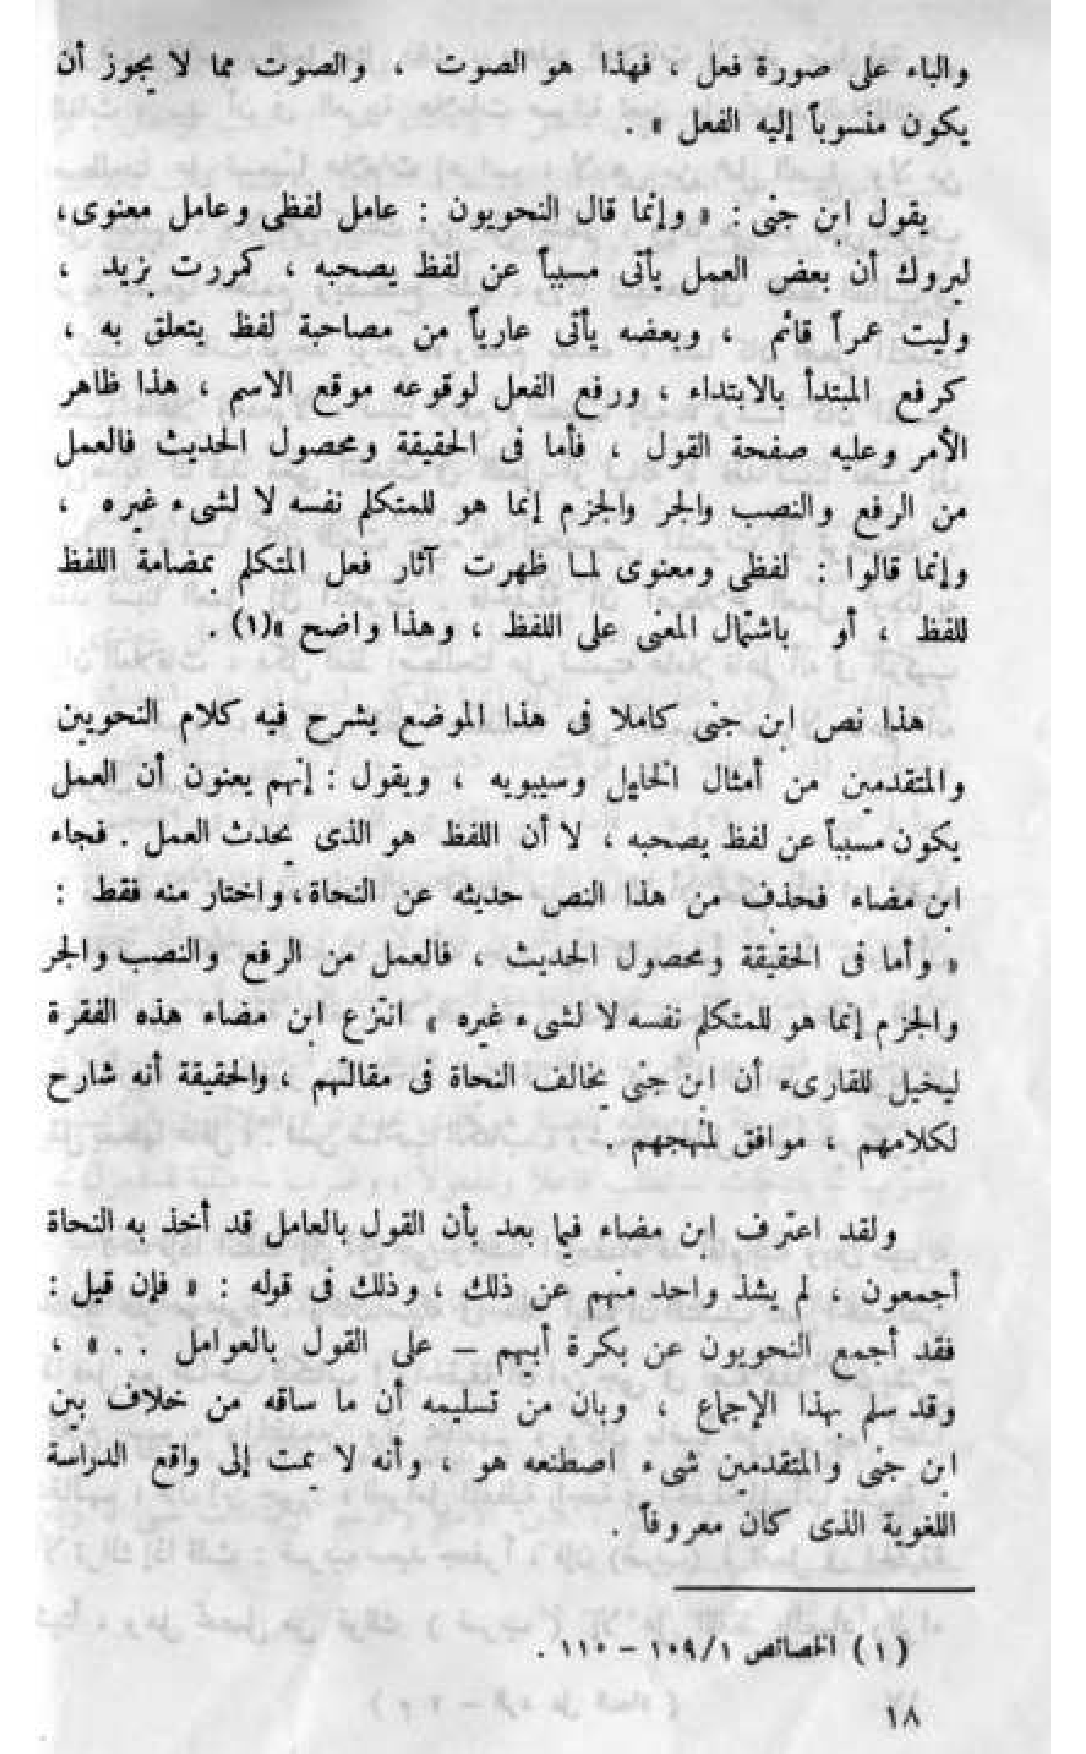 والباء على صورة فعل ، فهذا هو الصوت ، والصوت مما لا يجوز أن
يكون منسوباً إليه الفعل » .
يقول ابن جنى : « وإنما قال النحويون : عامل لفظى وعامل معنوى،
ليروك أن بعض العمل يأتى مسبباً عن لفظ يصحبه ، كمررت بزيد ،
وليت عمراً قائم ، وبعضه يأتى عارياً من مصاحبة لفظ يتعلق به ،
كرفع المبتدأ بالابتداء ، ورفع الفعل لوقوعه موقع الاسم ، هذا ظاهر
الأمر وعليه صفحة القول ، فأما فى الحقيقة ومحصول الحديث فالعمل
من الرفع والنصب والجر والجزم إنما هو للمتكلم نفسه لا لشىء غيره ،
وإنما قالوا : لفظى ومعنوى لمـا ظهرت آثار فعل المتكلم بمضامة اللفظ
للفظ ، أو باشتمال المعنى على اللفظ ، وهذا واضح »(١) .
هذا نص ابن جنى كاملا فى هذا الموضع يشرح فيه كلام النحويين
والمتقدمين من أمثال الخليل وسيبويه ، ويقول : إنهم يعنون أن العمل
يكون مسبباً عن لفظ يصحبه ، لا أن اللفظ هو الذى يحدث العمل . فجاء
ابن مضاء فحذف من هذا النص حديثه عن النحاة، واختار منه فقط :
« وأما فى الحقيقة ومحصول الحديث ، فالعمل من الرفع والنصب والجر
والجزم إنما هو للمتكلم نفسه لا لشىء غيره » انتزع ابن مضاء هذه الفقرة
ليخيل للقارىء أن ابن جنى يخالف النحاة فى مقالتهم ، والحقيقة أنه شارح
لكلامهم ، موافق لمنهجهم .
ولقد اعترف ابن مضاء فيما بعد بأن القول بالعامل قد أخذ به النحاة
أجمعون ، لم يشذ واحد منهم عن ذلك ، وذلك فى قوله : « فإن قيل :
فقد أجمع النحويون عن بكرة أبيهم – على القول بالعوامل . . » ،
وقد سلم بهذا الإجماع ، وبان من تسليمه أن ما ساقه من خلاف بين
ابن جنى والمتقدمين شىء اصطنعه هو ، وأنه لا يمت إلى واقع الدراسة
اللغوية الذى كان معروفاً .
(١) الخصائص ١/١٠٩ – ١١٠ .
١٨